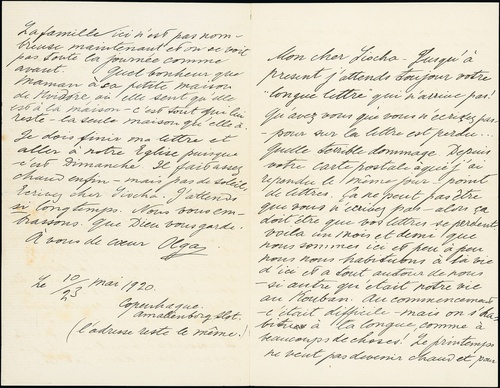 Mon cher Siocha - Jusqu'à
présent j'attends toujours votre
"longue lettre" qui n'arrive pas!
Qu'avez vous que vous n'écrivez pas-
- pour sur la lettre est perdu..
Quelle terrible dommage. Depuis
votre carte postale à que j'ai
répondu le même jour - point
de lettres. Ça ne peut pas être
que vous n'écrivez pas - alors ça
doit être que vos lettres se perdent
voila un mois et demi que
nous sommes ici et peu à peu
nous nous habituons à la vie
d'ici et a tout autour de nous
- si autre qu'était notre vie
au Kouban. Au commencement
c'était difficile - mais on s'ha-
bitue à la longue, comme à
beaucoups de choses! Le printemps
ne veut pas devenir chaud et pour
La famille ici n'est pas nom-
breuse maintenant et on se voit
pas toute la journée comme
avant. Quel bonheur que
maman à sa petite maison
de Hvidöre où elle sent qu'elle
est à la maison - c'est tout qui lui
reste - la seule maison qui elle à.
Je dois finir ma lettre et
aller à notre Église puisque
c'est Dimanche. Il fait assez
chaud enfin - mais pas de soleil.
Ecrivez cher Siocha. J'attends
si longtemps. Nous vous em-
brassons. Que Dieu vous garde.
À vous de cœur Olga
Le 10/23 mai 1920.
Copenhague.
Amalienborg slot.
(l'adresse reste le même!)